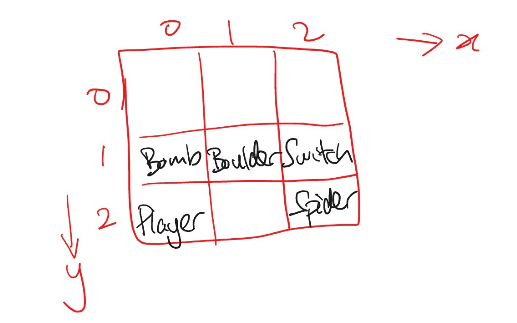 0 1 2 → x
0
1 Bomb Boulder Switch
2 Player Spider
y